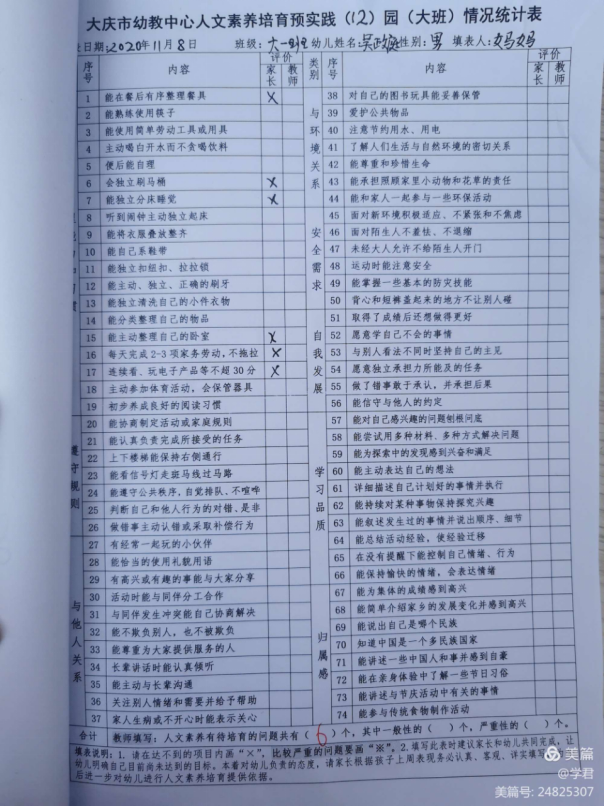 大庆市幼教中心人文素养培育预实践（12）园（大班）情况统计表
日期:2020年11月8日 班级:大一班 幼儿姓名: 性别:男 填表人:妈妈
序号 内容 评价 家长 教师 类别 序号 内容 评价 家长 教师
1 能在餐后有序整理餐具 X 38 对自己的图书玩具能妥善保管
2 能熟练使用筷子 39 爱护公共物品
3 能使用简单劳动工具或用具 40 注意节约用水、用电
4 主动喝白开水而不贪喝饮料 41 了解人们生活与自然环境的密切关系
5 便后能自理 42 能尊重和珍惜生命
6 会独立刷马桶 X 43 能承担照顾家里小动物和花草的责任
7 能独立分床睡觉 X 44 能和家人一起参与一些环保活动
8 听到闹钟主动独立起床 45 面对新环境积极适应、不紧张和不焦虑
9 能将衣服叠放整齐 46 面对陌生人不羞怯、不退缩
10 能自己系鞋带 47 未经大人允许不给陌生人开门
11 能独立扣纽扣、拉拉锁 48 运动时能注意安全
12 能主动、独立、正确的刷牙 49 能掌握一些基本的防灾技能
13 能独立清洗自己的小件衣物 50 背心和短裤盖起来的地方不让别人碰
14 能分类整理自己的物品 51 取得了成绩后还想做得更好
15 能主动整理自己的卧室 X 52 愿意学自己不会的事情
16 每天完成2-3项家务劳动,不拖拉 X 53 与别人看法不同时坚持自己的主见
17 连续看、玩电子产品等不超30分 X 54 愿意独立承担力所能及的任务
18 主动参加体育活动，会保管器具 55 做了错事敢于承认，并承担后果
19 初步养成良好的阅读习惯 56 能信守与他人的约定
20 能协商制定活动或家庭规则 57 能对自己感兴趣的问题刨根问底
21 能认真负责完成所接受的任务 58 能尝试用多种材料、多种方式解决问题
22 上下楼梯能保持右侧通行 59 能为探索中的发现感到兴奋和满足
23 能看信号灯走斑马线过马路 60 能主动表达自己的想法
24 能遵守公共秩序，自觉排队、不喧哗 61 详细描述自己计划好的事情并执行
25 判断自己和他人行为的对错、是非 62 能持续对某种事物保持探究兴趣
26 做错事主动认错或采取补偿行为 63 能叙述发生过的事情并说出顺序、细节
27 有经常一起玩的小伙伴 64 能总结活动经验，使经验迁移
28 能恰当的使用礼貌用语 65 在没有提醒下能控制自己情绪、行为
29 有高兴或有趣的事能与大家分享 66 能保持愉快的情绪，会表达情绪
30 活动能时与同伴分工合作 67 能为集体的成绩感到高兴
31 与同伴发生冲突能自己协商解决 68 能简单介绍家乡的发展变化并感到高兴
32 能不欺负别人，也不被欺负 69 能说出自己是哪个民族
33 能尊重为大家提供服务的人 70 知道中国是一个多民族国家
34 长辈讲话时能认真倾听 71 能讲述一些中国人和事并感到自豪
35 能主动与长辈沟通 72 能在亲身体验中了解一些节日习俗
36 关注别人情绪和需要并给予帮助 73 能讲述与节庆活动中有关的事情
37 家人生病或不开心时能表示关心 74 能参与传统食物制作活动
遵守规则
与他人关系
与环境关系
安全需求
自我发展
学习品质
归属感
合计 教师填写：人文素养有待培育的问题共有（6）个，其中一般性的（ ）个，严重性的（ ）个。
填表说明：1.请在达不到的项目内画“×”，比较严重的问题要画“※”。2.填写此表时建议家长和幼儿共同完成，让
幼儿明确自己目前尚未达到的目标，本着对幼儿负责的态度，请家长根据孩子上周表现务必认真、客观、详实填写
后进一步对幼儿进行人文素养培育提供依据。
美篇
@学君
美篇号: 24825307